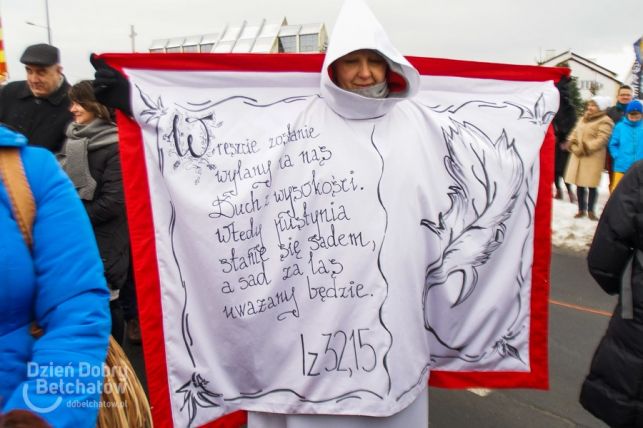 Wreszcie zostanie
wylany na nas
Duch z wysokości.
Wtedy pustynia
stanie się sadem,
a sad za las
uważany będzie.
Iz 32,15
Dzień Dobry
Bełchatów
ddbelchatow.pl